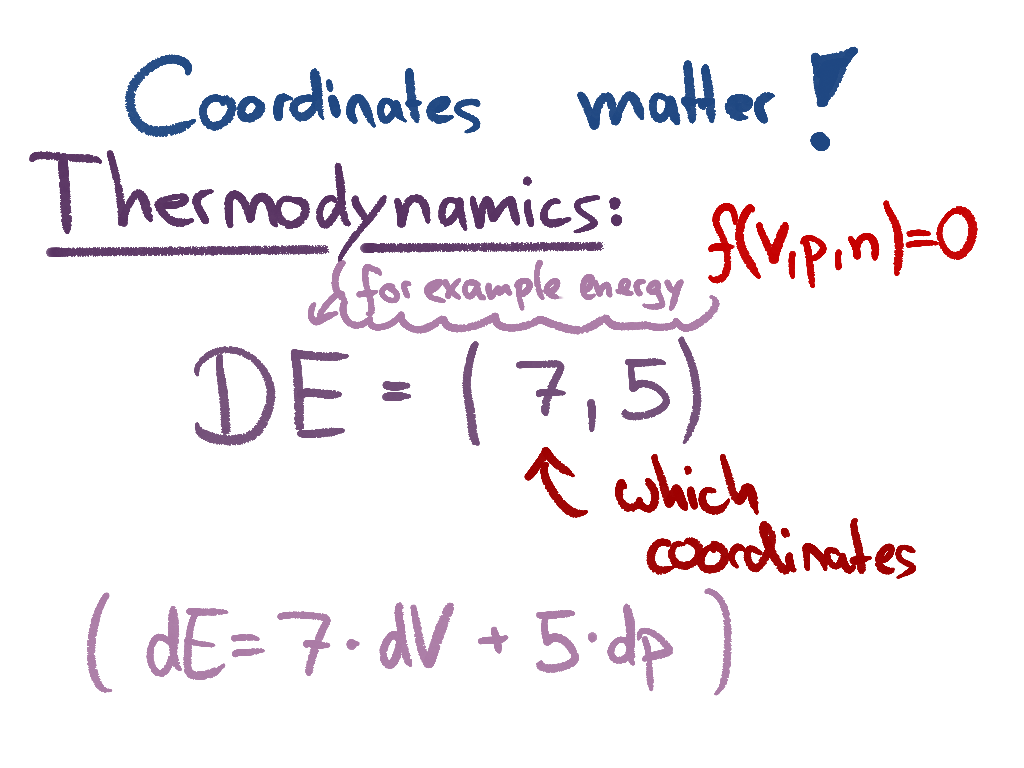 Coordinates matter!
Thermodynamics:
f(V,p,n)=0
for example energy
DE = (7,5)
which
coordinates
(dE=7·dV + 5·dp)